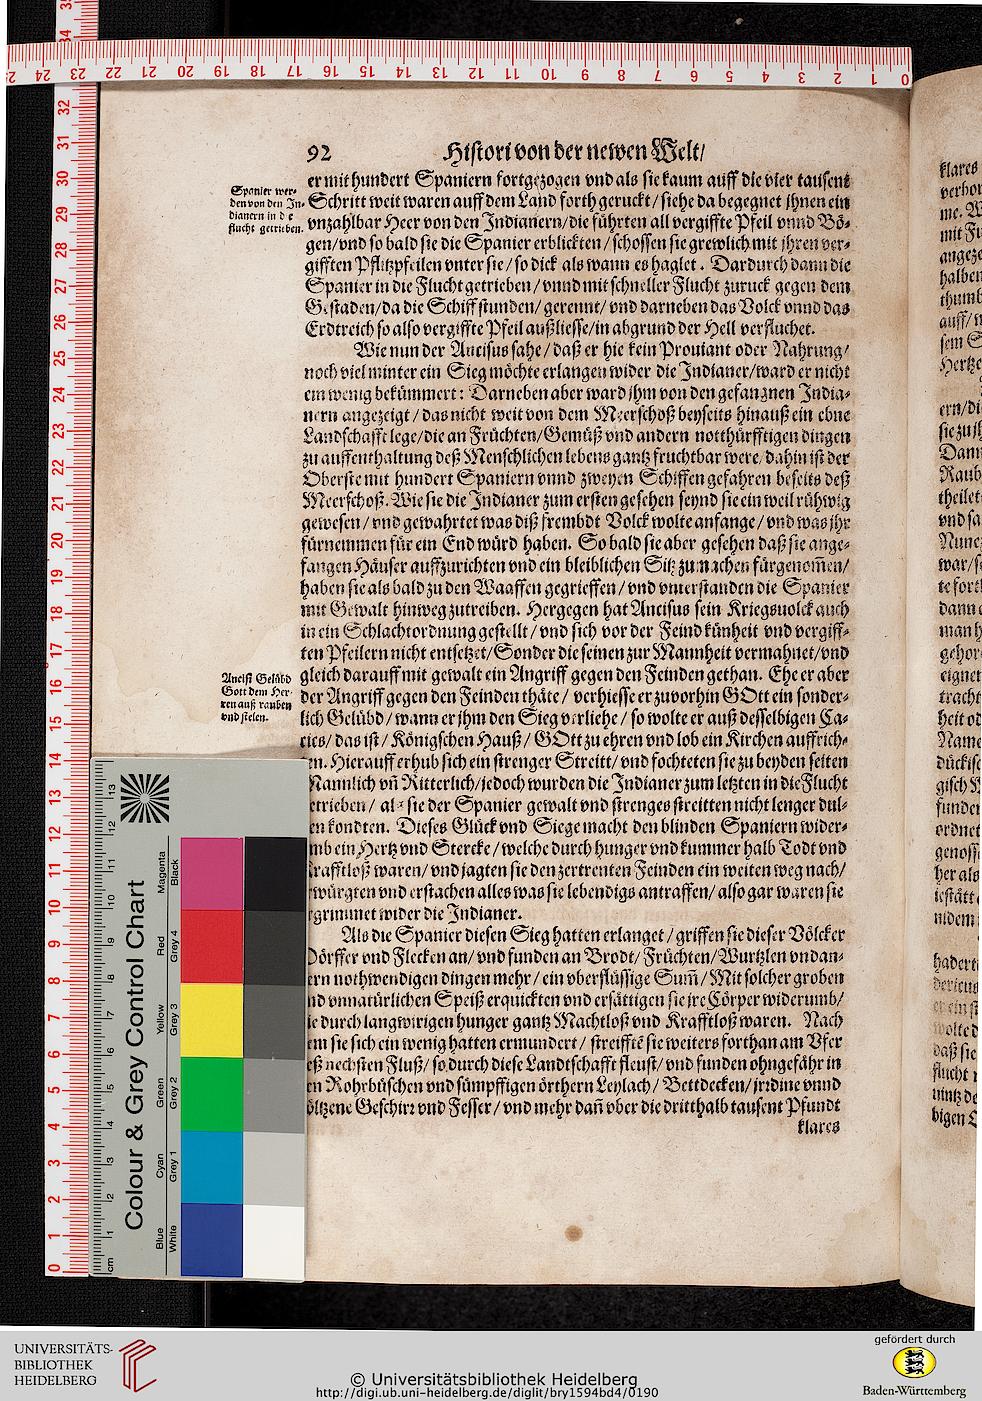 92 Histori von der newen Welt/
er mit hundert Spaniern fortgezogen vnd als sie kaum auff die vier tausent
Spanier wer-
den von den In-
dianern in die
flucht getrieben.
Schritt weit waren auff dem Land forth geruckt/ siehe da begegnet jhnen ein
vnzahlbar Heer von den Indianern/ die führten all vergiffte Pfeil vnnd Bö-
gen/ vnd so bald sie die Spanier erblickten/ schossen sie grewlich mit jhren ver-
gifften Pflitzpfeilen vnter sie/ so dick als wann es haglet. Dardurch dann die
Spanier in die Flucht getrieben/ vnnd mit schneller Flucht zuruck gegen dem
Gestaden/ da die Schiff stunden/ gerennt/ vnd darneben das Volck vnnd das
Erdtreich so also vergiffte Pfeil außliesse/ in abgrund der Hell verfluchet.
Wie nun der Ancisus sahe/ daß er hie kein Prouiant oder Nahrung/
noch viel minter ein Sieg möchte erlangen wider die Indianer/ ward er nicht
ein wenig bekümmert: Darneben aber ward jhm von den gefangnen India-
nern angezeigt/ das nicht weit von dem Meerschoß beyseits hinauß ein ebne
Landschafft lege/ die an Früchten/ Gemüß vnd andern notthürfftigen dingen
zu auffenthaltung deß Menschlichen lebens gantz fruchtbar were/ dahin ist der
Oberste mit hundert Spaniern vnnd zweyen Schiffen gefahren beseits deß
Meerschoß. Wie sie die Indianer zum ersten gesehen seynd sie ein weil rühwig
gewesen/ vnd gewahrtet was diß frembdt Volck wolte anfange/ vnd was jhr
fürnemmen für ein End würd haben. So bald sie aber gesehen daß sie ange-
fangen Häuser auffzurichten vnd ein bleiblichen Sitz zu machen fürgenom̃en/
haben sie als bald zu den Waaffen gegrieffen/ vnd vnterstanden die Spanier
mit Gewalt hinweg zutreiben. Hergegen hat Ancisus sein Kriegsuolck auch
in ein Schlachtordnung gestellt/ vnd sich vor der Feind künheit vnd vergiff-
ten Pfeilern nicht entsetzet/ Sonder die seinen zur Mannheit vermahnet/ vnd
Ancisi Gelübd
Gott dem Her-
ren auß rauben
vnd stelen.
gleich darauff mit gewalt ein Angriff gegen den Feinden gethan. Ehe er aber
der Angriff gegen den Feinden thäte/ verhiesse er zuvorhin GOtt ein sonder-
lich Gelübd/ wann er jhm den Sieg verliehe/ so wolte er auß desselbigen Ca-
cies/ das ist/ Königschen Hauß/ GOtt zu ehren vnd lob ein Kirchen auffrich-
en. Hierauff erhub sich ein strenger Streitt/ vnd fochteten sie zu beyden seiten
Mannlich vñ Ritterlich/ jedoch wurden die Indianer zum letzten in die Flucht
etrieben/ als sie der Spanier gewalt vnd strenges streitten nicht lenger dul-
en kondten. Dieses Glück vnd Siege macht den blinden Spaniern wider-
mb ein Hertz vnd Stercke/ welche durch hunger vnd kummer halb Todt vnd
rafftloß waren/ vnd jagten sie den zertrenten Feinden ein weiten weg nach/
rwürgten vnd erstachen alles was sie lebendigs antraffen/ also gar waren sie
rgrimmet wider die Indianer.
Als die Spanier diesen Sieg hatten erlanget/ griffen sie dieser Völcker
Dörffer vnd Flecken an/ vnd funden an Brodt/ Früchten/ Wurtzlen vnd an-
ern nothwendigen dingen mehr/ ein vberflüssige Sum̃/ Mit solcher groben
nd vnnatürlichen Speiß erquickten vnd ersättigen sie jre Cörper widerumb/
ie durch langwirigen hunger gantz Machtloß vnd Krafftloß waren. Nach
em sie sich ein wenig hatten ermundert/ streifftẽ sie weiters forthan am Vfer
eß nechsten Fluß/ so durch diese Landtschafft fleust/ vnd funden ohngefähr in
en Rohrbüschen vnd sümpffigen örthern Leylach/ Bettdecken/ jrrdine vnnd
öltzene Geschirr vnd Fesser/ vnd mehr dañ vber die dritthalb tausent Pfundt
klares
Colour & Grey Control Chart
Blue Cyan Green Yellow Red Magenta
White Grey 1 Grey 2 Grey 3 Grey 4 Black
UNIVERSITÄTS-
BIBLIOTHEK
HEIDELBERG
© Universitätsbibliothek Heidelberg
http://digi.ub.uni-heidelberg.de/diglit/bry1594bd4/0190
gefördert durch
Baden-Württemberg